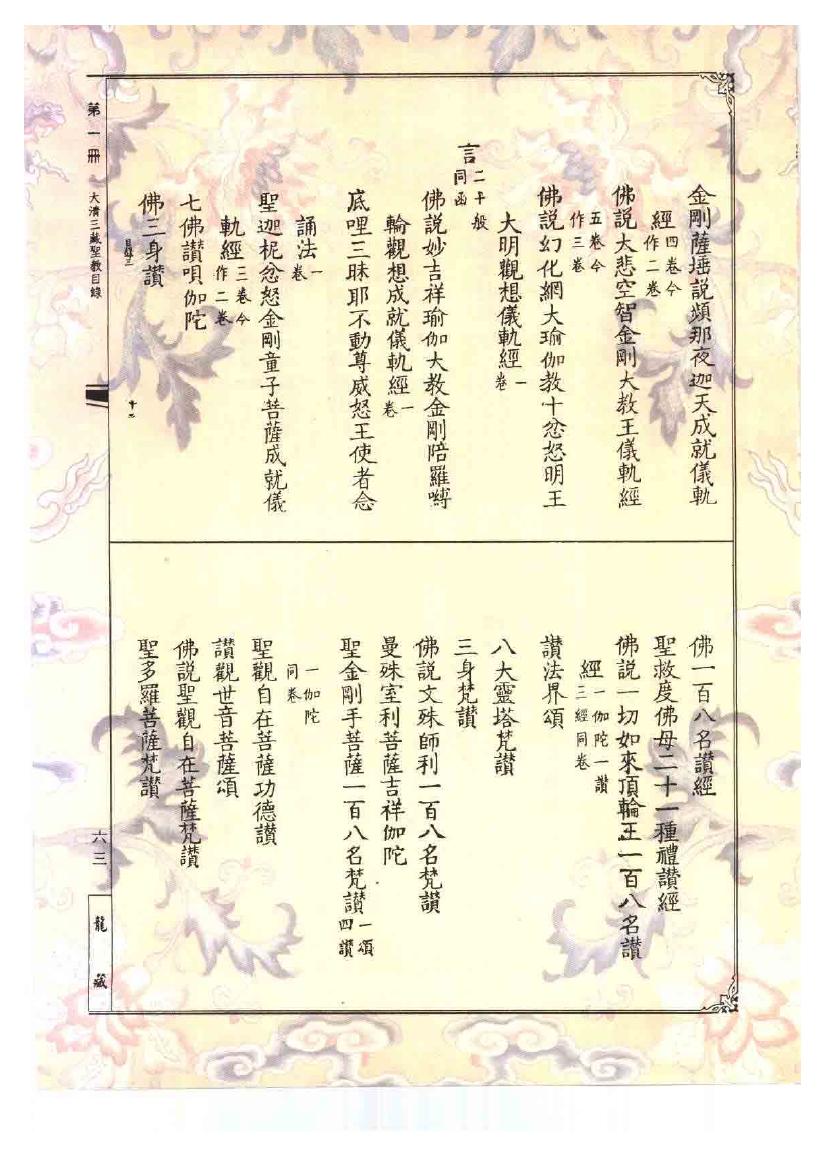 金剛薩埵說頻那夜迦天成就儀軌
經四卷今作二卷
佛說大悲空智金剛大教王儀軌經
五卷今作三卷
佛說幻化網大瑜伽教十忿怒明王
大明觀想儀軌經一卷
言二十般同函
佛說妙吉祥瑜伽大教金剛陪羅嚩
輪觀想成就儀軌經一卷
底哩三昧耶不動尊威怒王使者念
誦法一卷
聖迦柅忿怒金剛童子菩薩成就儀
軌經三卷今作二卷
七佛讚唄伽陀
佛三身讚
佛一百八名讚經
聖救度佛母二十一種禮讚經
佛說一切如來頂輪王一百八名讚
經一伽陀一讚三經同卷
讚法界頌
八大靈塔梵讚
三身梵讚
佛說文殊師利一百八名梵讚
曼殊室利菩薩吉祥伽陀
聖金剛手菩薩一百八名梵讚一頌四讚
一伽陀同卷
聖觀自在菩薩功德讚
讚觀世音菩薩頌
佛說聖觀自在菩薩梵讚
聖多羅菩薩梵讚
第一冊 大清三藏聖教目錄
六三
龍藏